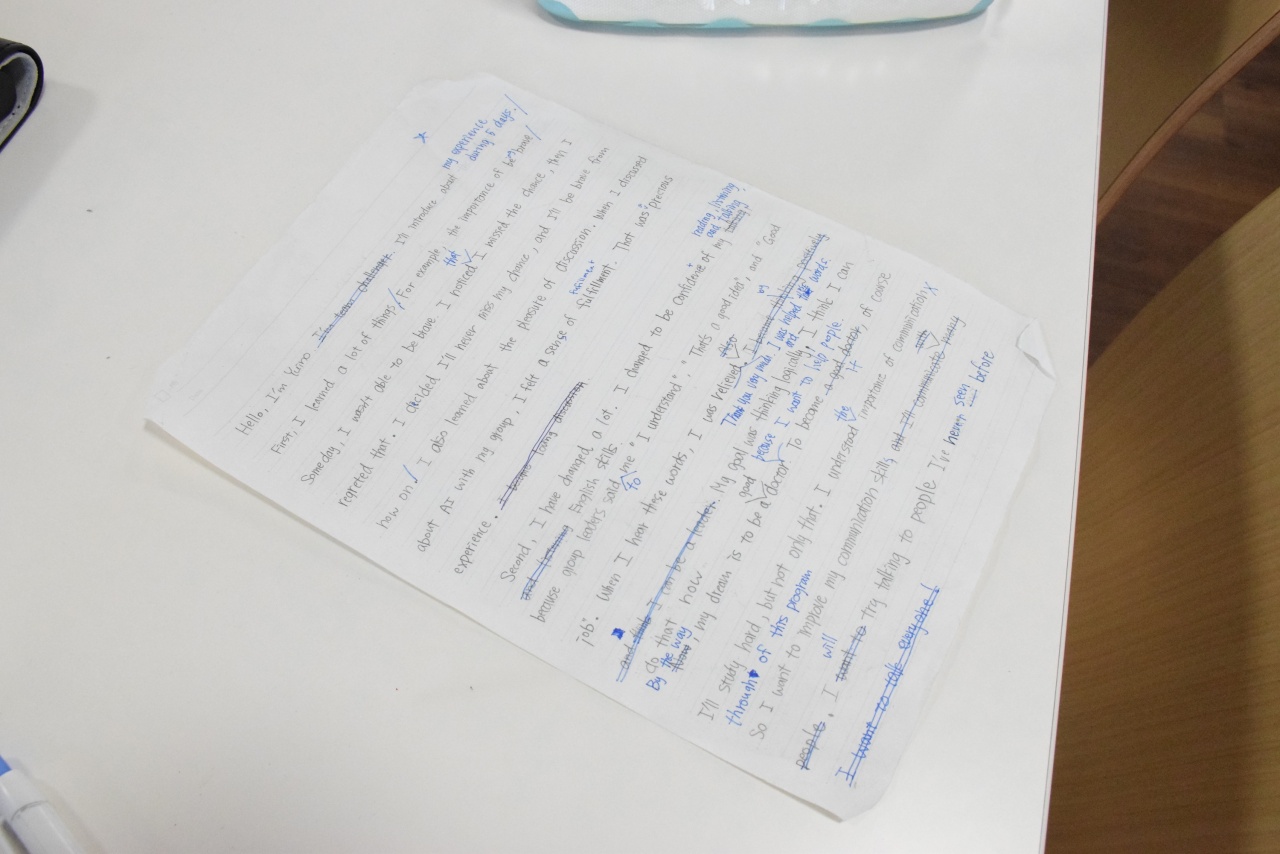 my experience
during 5 days.
Hello, I'm Yuno. I'm team challenger. I'll introduce about
First, I learned a lot of things. For example, the importance of being brave
that
Someday, I wasn't able to be brave. I noticed I missed the chance, then I
regreted that. I decided I'll never miss my chance, and I'll be brave from
now on. I also learned about the pleasure of discussion. When I discussed
about AI with my group, I felt a sense of fulfillment. That was precious
fulfillment
experience.
reading, listening,
and talking
Second, I have changed a lot. I changed to be confidence of my talking,
and listening English skills
because group leaders said me "I understand", "That's a good idea", and "Good
To
job". When I hear these words, I was relieved. I became thinking positively
also
by
Thank you very much. I was helped words.
and think I can be a leader. My goal was thinking logically. I think I can
do that now because I want to help people.
By the way, my dream is to be a good doctor. To became a good doctor, of course
it
I'll study hard, but not only that. I understood the importance of communication
through of this program
So I want to improve my communication skills, and I'll communicate with many
people. I will want to try talking to people I've never seen before
I want to talk everyone!